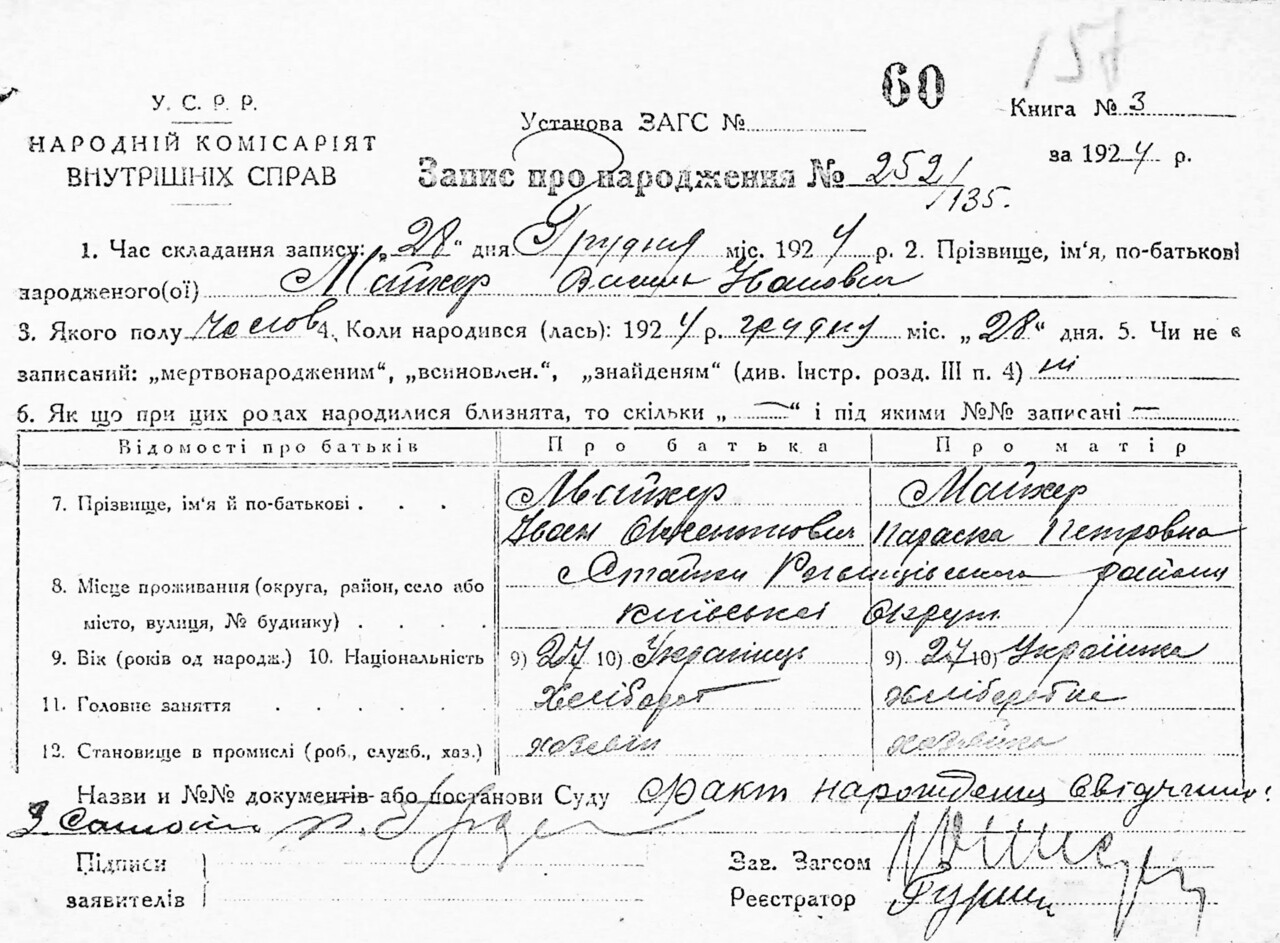 60
У. С. Р. Р.
НАРОДНІЙ КОМІСАРІЯТ
ВНУТРІШНІХ СПРАВ
Установа ЗАГС №
Книга № 3
за 1924 р.
Запис про народження № 252/135.
1. Час складання запису: „28“ дня Грудня міс. 1924 р. 2. Прізвище, ім'я, по-батькові
народженого(ої) Майхер Василь Іванович
3. Якого полу чолов 4. Коли народився (лась): 1924 р. грудня міс. „28“ дня. 5. Чи не є
записаний: „мертвонародженим“, „всиновлен.“, „знайденям“ (див. Інстр. розд. III п. 4) ні
6. Як що при цих родах народилися близнята, то скільки „—“ і під якими №№ записані —
Відомості про батьків Про батька Про матір
7. Прізвище, ім'я й по-батькові . . . Майхер Майхер
Іван Параска Петровна
8. Місце проживання (округа, район, село або Стайки района
місто, вулиця, № будинку) . . . . київської Округи
9. Вік (років од народж.) 10. Національність 9) 27 10) Українець 9) 27 10) Українка
11. Головне заняття . . . . . . Хлібороб хліборобка
12. Становище в промислі (роб., служб., хаз.) хозяїн хозяйка
Назви и №№ документів або постанови Суду Факт нарождения
Підписи
заявителів
Зав. Загсом
Реєстратор